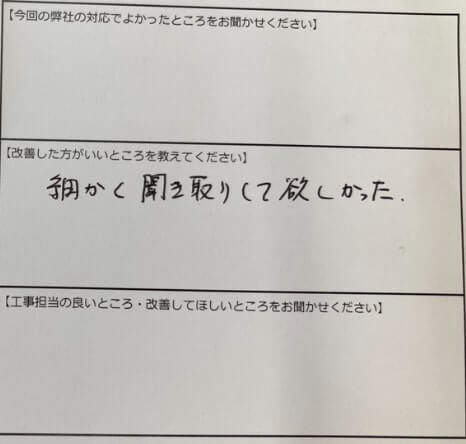 【今回の弊社の対応でよかったところをお聞かせください】
【改善した方がいいところを教えてください】
細かく聞き取りして欲しかった.
【工事担当の良いところ・改善してほしいところをお聞かせください】